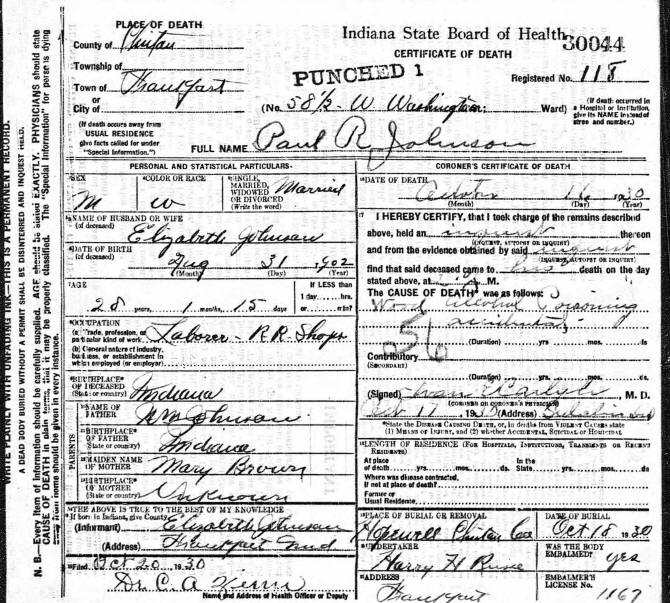 PLACE OF DEATH
County of Clinton
Township of
Town of Frankfort
or
City of
(If death occurs away from
USUAL RESIDENCE
give facts called for under
"Special Information.")
Indiana State Board of Health
30044
CERTIFICATE OF DEATH
PUNCHED 1
Registered No. 118
(No. 58½ - W. Washington: Ward)
(If death occurred in
a Hospital or Institution,
give its NAME instead of
stree and number.)
FULL NAME Paul R Johnson
PERSONAL AND STATISTICAL PARTICULARS
SEX
M
COLOR OR RACE
W
SINGLE,
MARRIED,
WIDOWED
OR DIVORCED
(Write the word)
Married
NAME OF HUSBAND OR WIFE
(of deceased)
Elizabeth Johnson
DATE OF BIRTH
(of deceased)
Aug 31, 1902
(Month) (Day) (Year)
AGE
28 years, 1 months, 15 days
If LESS than
1 day....hrs.
or ....min?
OCCUPATION
(a) Trade, profession, or
particular kind of work
Laborer - R R Shops
(b) General nature of industry,
business, or establishment in
which employed (or employer)
BIRTHPLACE
OF DECEASED
(State or country)
Indiana
PARENTS
NAME OF
FATHER
Wm Johnson
BIRTHPLACE
OF FATHER
(State or country)
Indiana
MAIDEN NAME
OF MOTHER
Mary Brown
BIRTHPLACE
OF MOTHER
(State or country)
Unknown
THE ABOVE IS TRUE TO THE BEST OF MY KNOWLEDGE
If born in Indiana, give County
(Informant) Elizabeth Johnson
(Address) Frankfort Ind
Filed Oct 20, 1930
Dr. C. A. Zierin
Name and Address of Health Officer or Deputy
CORONER'S CERTIFICATE OF DEATH
DATE OF DEATH
16 1930
(Month) (Day) (Year)
I HEREBY CERTIFY, that I took charge of the remains described
above, held an inquest thereon
(INQUEST, AUTOPSY OR INQUIRY)
and from the evidence obtained by said inquest
(INQUEST, AUTOPSY OR INQUIRY)
find that said deceased came to his death on the day
stated above, at M.
The CAUSE OF DEATH was as follows:
Wood Alcohol Poisoning
accidental
56
(Duration) yrs mos. ds
Contributory
(SECONDARY)
(Duration) yrs. mos. ds.
(Signed) M. D.
(CORONER OR CORONER'S PHYSICIAN)
Oct 17, 1930 (Address)
*State the DISEASE CAUSING DEATH, or, in deaths from VIOLENT CAUSES state
(1) MEANS OF INJURY, and (2) whether ACCIDENTAL, SUICIDAL or HOMICIDAL
LENGTH OF RESIDENCE (FOR HOSPITALS, INSTITUTIONS, TRANSIENTS OR RECENT
RESIDENTS)
At place
of death....yrs....mos....ds.
In the
State....yrs....mos....ds.
Where was disease contracted,
If not at place of death?
Former or
Usual Residence
PLACE OF BURIAL OR REMOVAL
Hopewell Clinton Co
DATE OF BURIAL
Oct 18 1930
UNDERTAKER
Harry H
WAS THE BODY
EMBALMED? yes
ADDRESS
Frankfort
EMBALMER'S
LICENSE NO. 1167
WRITE PLAINLY WITH UNFADING INK—THIS IS A PERMANENT RECORD.
A DEAD BODY BURIED WITHOUT A PERMIT SHALL BE DISINTERRED AND INQUEST HELD.
N. B.—Every item of information should be carefully supplied. AGE should be stated EXACTLY. PHYSICIANS should state
CAUSE OF DEATH in plain terms, that it may be properly classified. The "Special Information" for persons dying
from home should be given in every instance.